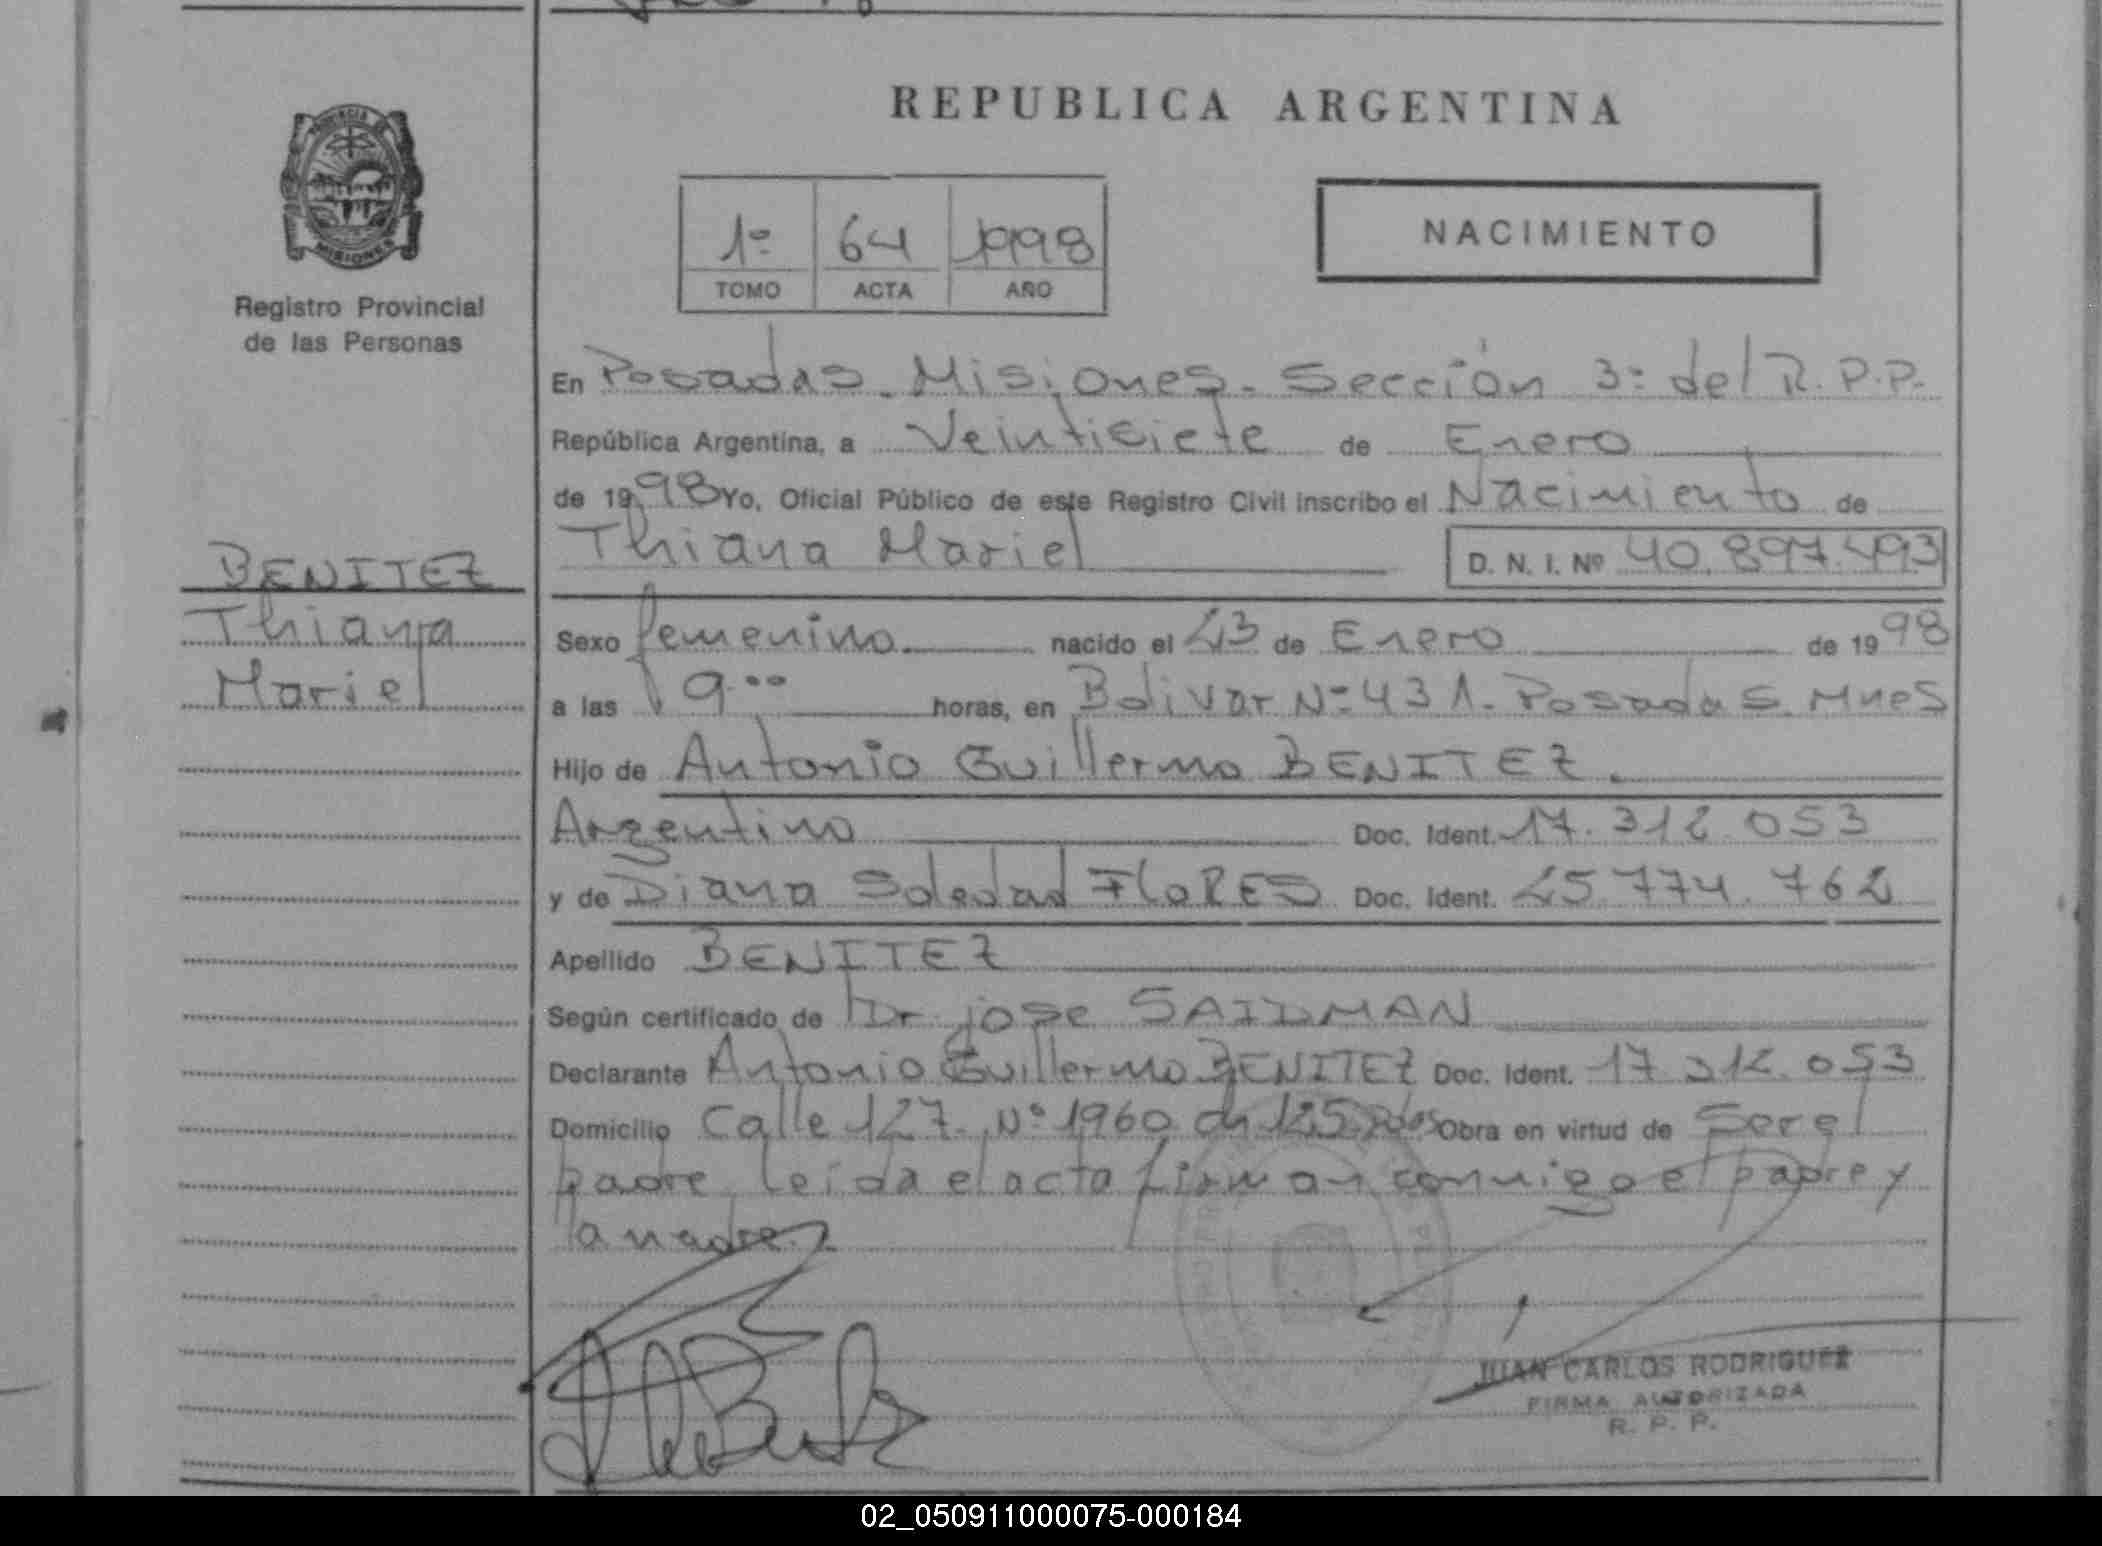 REPUBLICA ARGENTINA
PROVINCIA DE
MISIONES
Registro Provincial
de las Personas
1º 64 1998
TOMO ACTA AÑO
NACIMIENTO
En Posadas. Misiones. Sección 3º del R.P.P.
República Argentina, a Veintisiete de Enero
de 1998 Yo, Oficial Público de este Registro Civil inscribo el Nacimiento de
Thiana Mariel D. N. I. Nº 40.897.493
BENITEZ
Thiana
Mariel
Sexo femenino. nacido el 23 de Enero de 1998
a las 9.00 horas, en Bolivar Nº 431. Posadas. Mnes
Hijo de Antonio Guillermo BENITEZ.
Argentino Doc. Ident. 17.312.053
y de Diana Soledad FloRES Doc. Ident. 25.774.762
Apellido BENITEZ
Según certificado de Dr. jose SAIDMAN
Declarante Antonio Guillermo BENITEZ Doc. Ident. 17 312.053
Domicilio Calle 127. Nº 1960 ch 125 Pdas Obra en virtud de Ser el
padre, leida el acta firman conmigo el padre y
la madre.
JUAN CARLOS RODRIGUEZ
FIRMA AUTORIZADA
R. P. P.
02_050911000075-000184